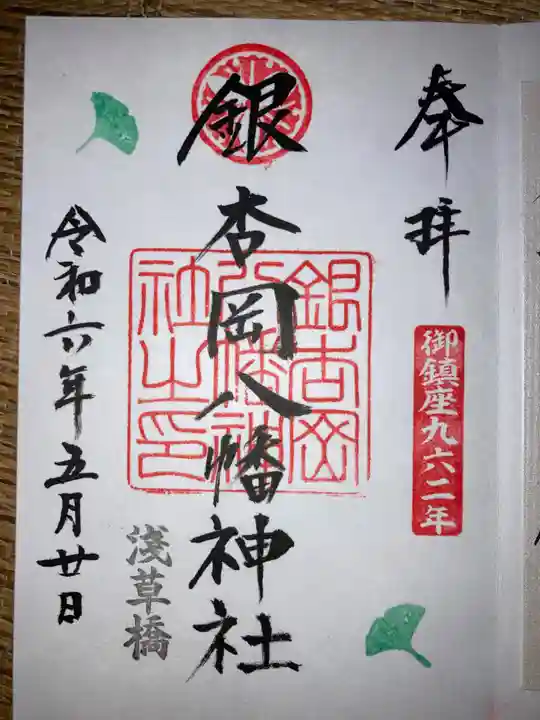 奉拝
御鎮座九六二年
銀杏岡八幡神社
銀杏岡八幡神社之印
浅草橋
令和六年五月廿日